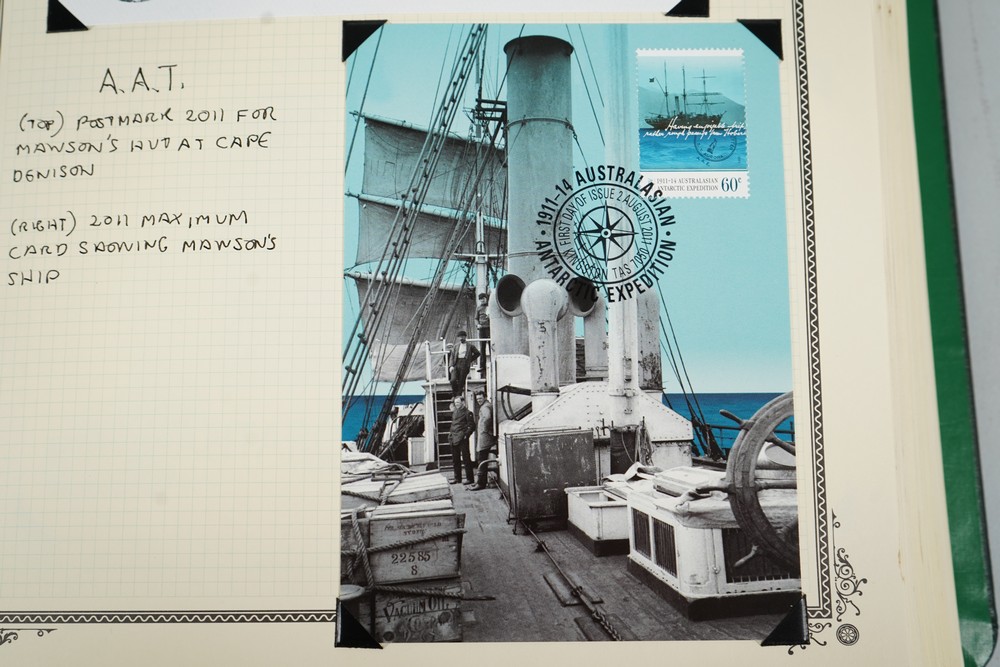 A.A.T.
(TOP) POSTMARK 2011 FOR
MAWSON'S HUT AT CAPE
DENISON
(RIGHT) 2011 MAXIMUM
CARD SHOWING MAWSON'S
SHIP
Having enjoyable - but
rather rough passage from Hobart
1911-14 AUSTRALASIAN
ANTARCTIC EXPEDITION 60c
1911-14 AUSTRALASIAN
ANTARCTIC EXPEDITION
FIRST DAY OF ISSUE 2 AUGUST 2011
KINGSTON TAS 7050
22585
8
VACUUM OIL